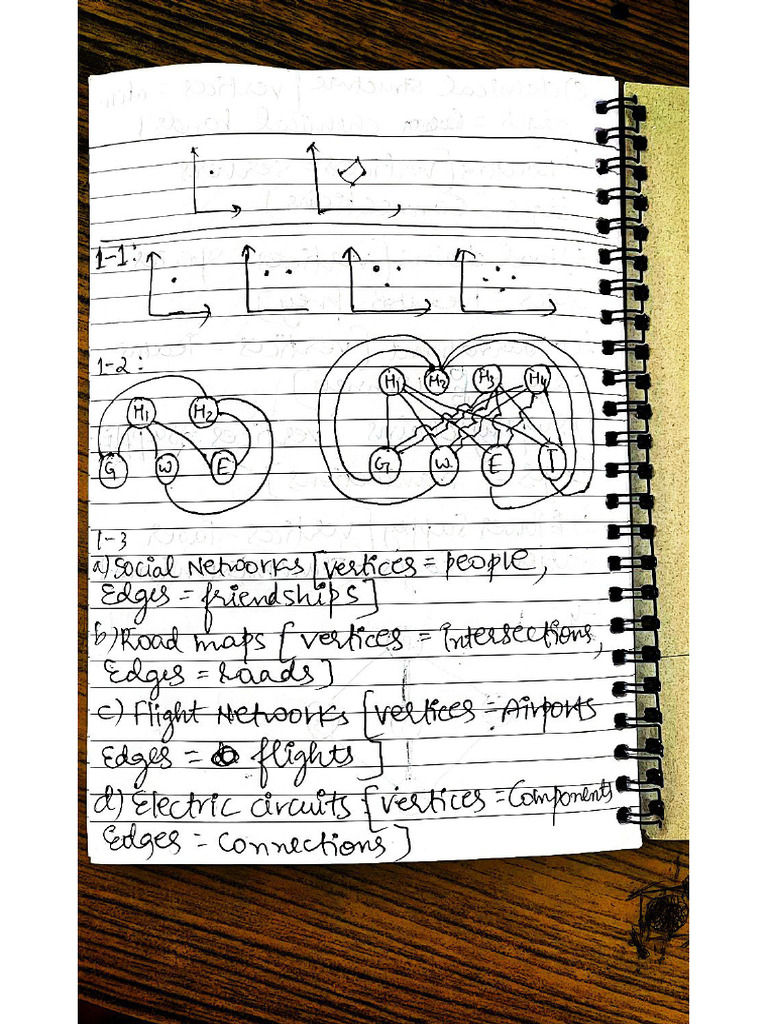 1-1:
1-2:
H1 H2
G W E
H1 H2 H3 H4
G W E T
1-3
a) Social Networks [vertices = people,
Edges = friendships]
b) Road maps [vertices = intersections,
Edges = roads]
c) Flight Networks [vertices = Airports
Edges = flights]
d) Electric circuits [vertices = Components
Edges = Connections]